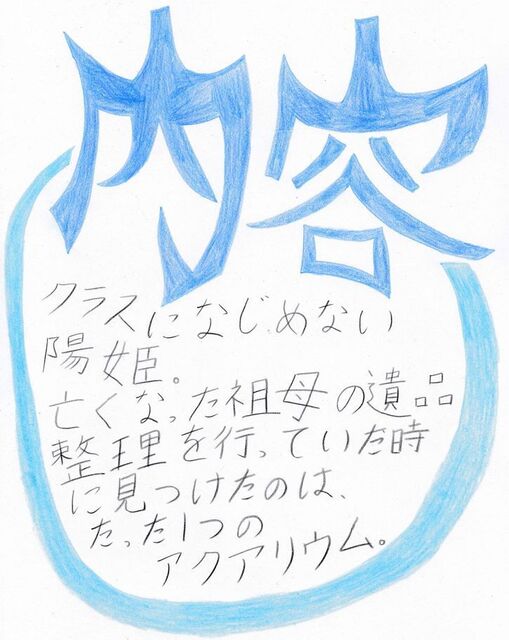 内容
クラスになじめない
陽姫。
亡くなった祖母の遺品
整理を行っていた時
に見つけたのは、
たった1つの
アクアリウム。